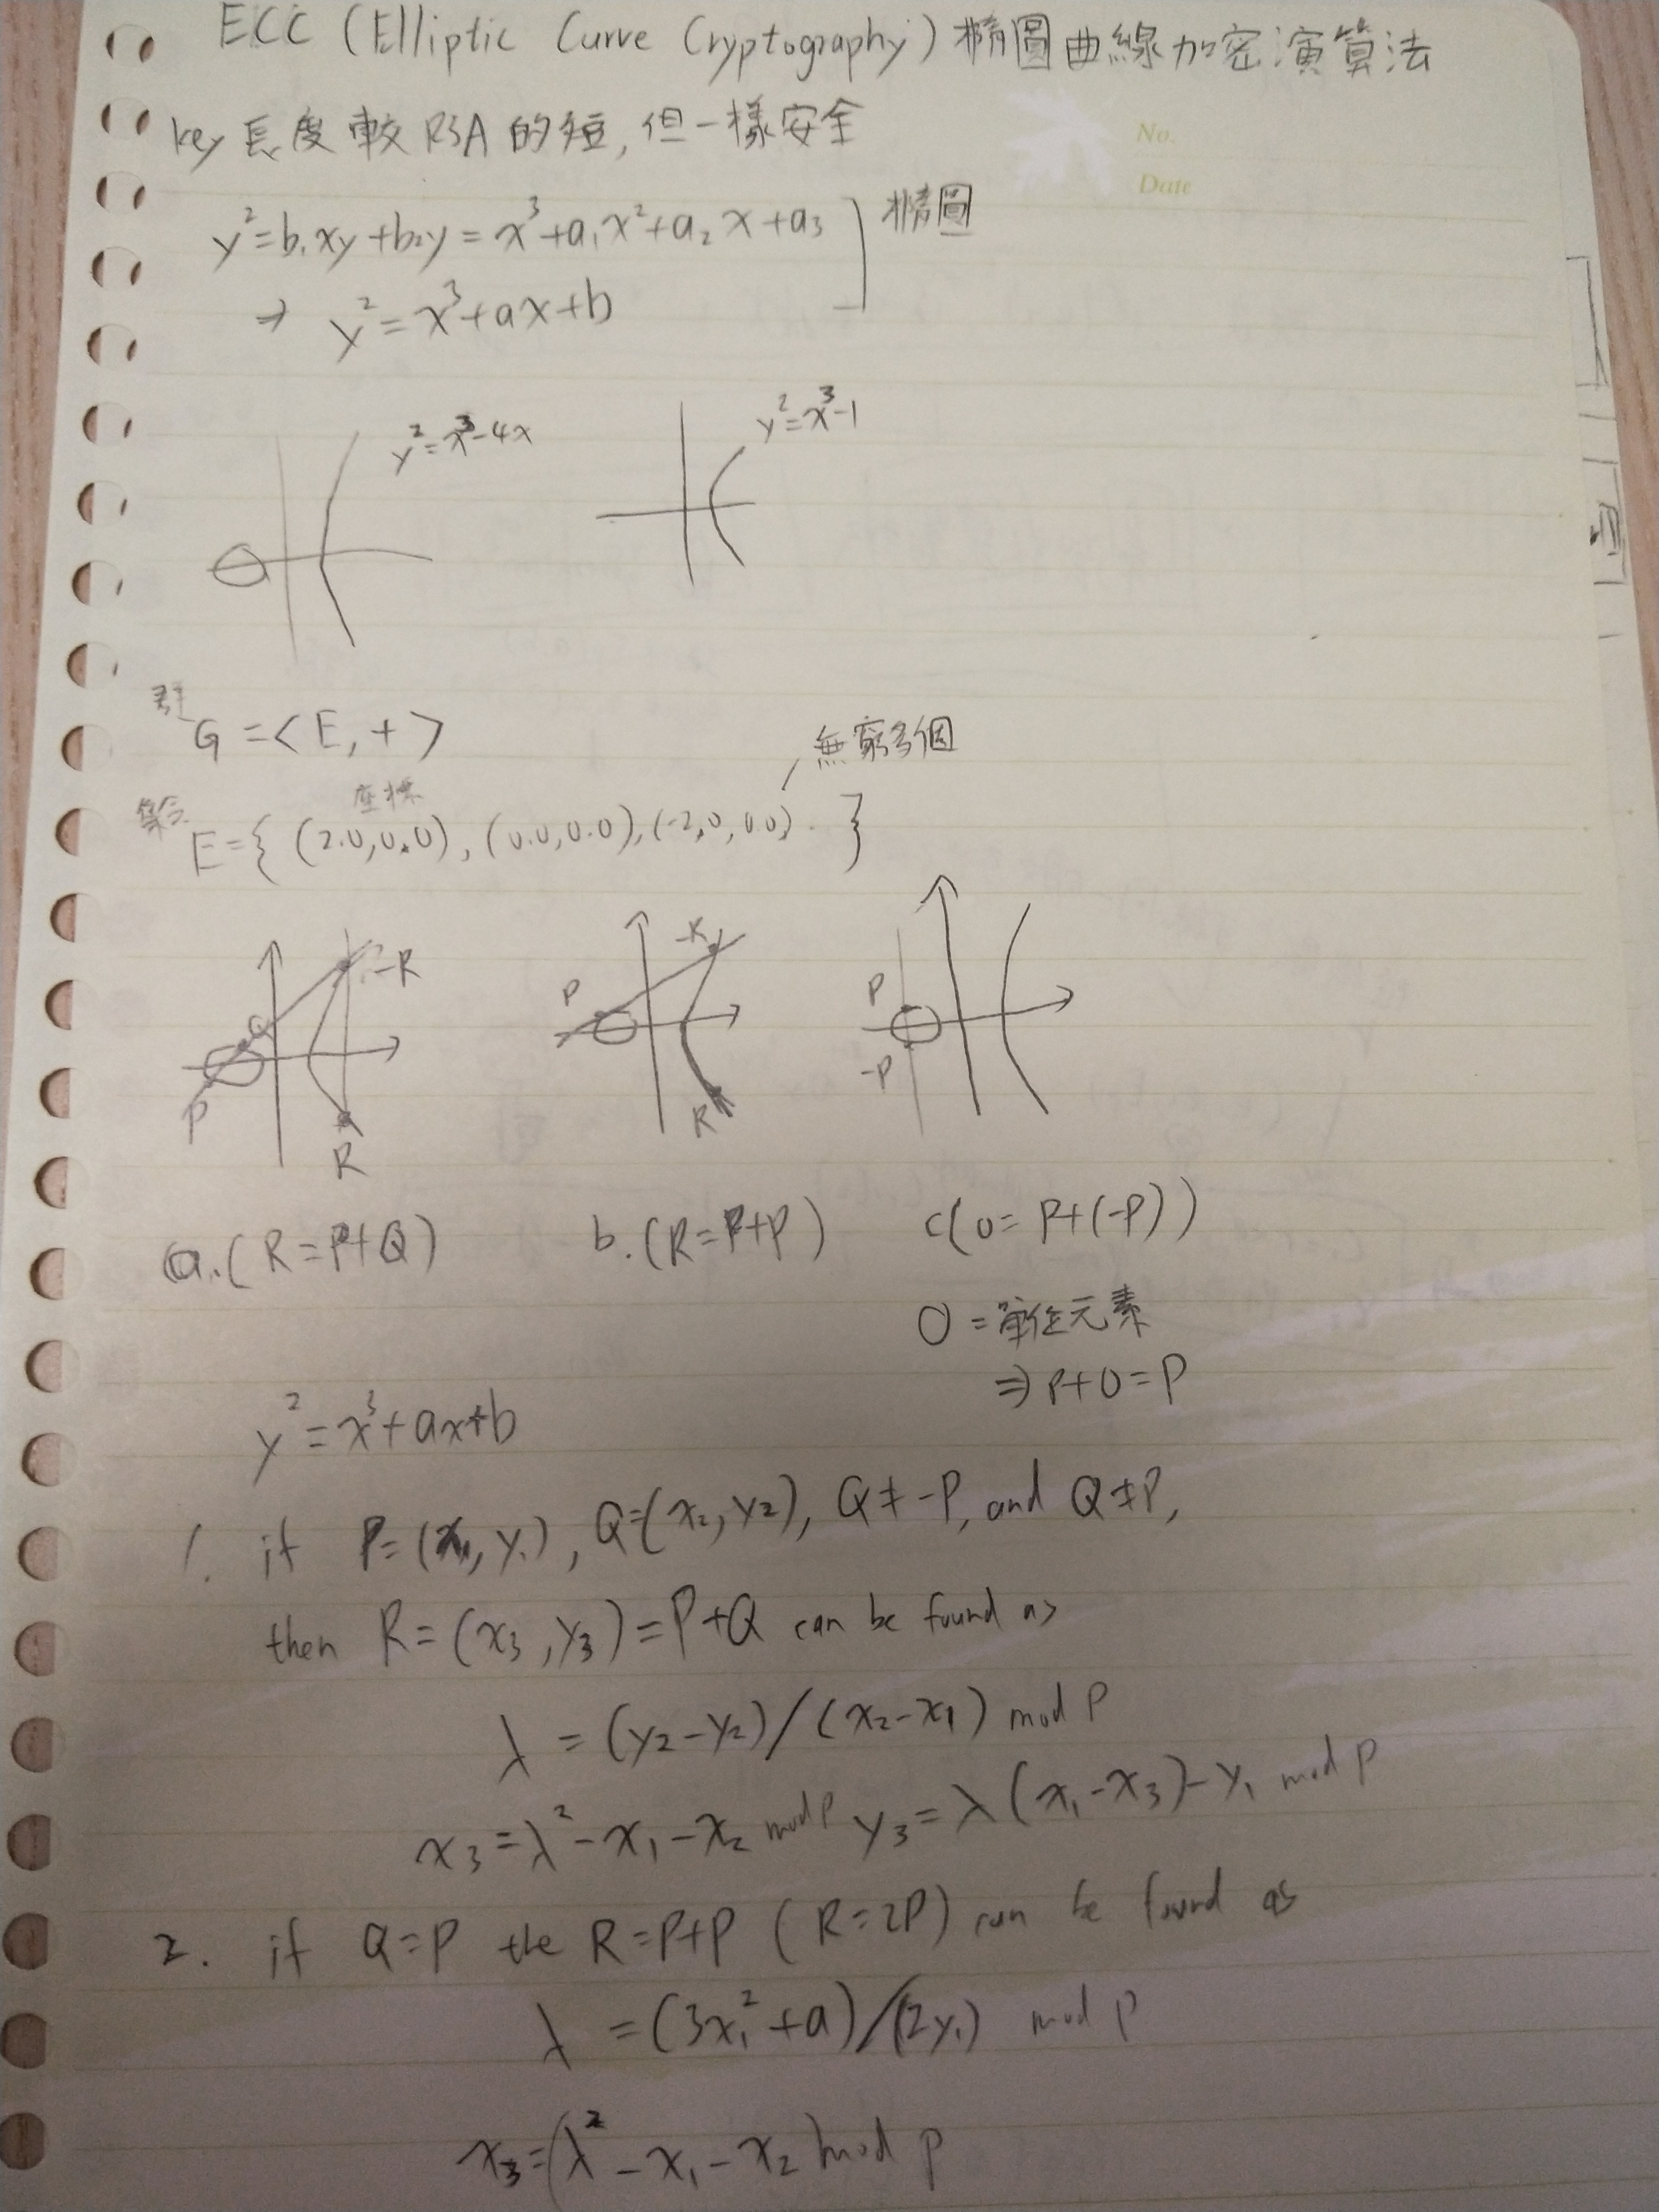 ECC (Elliptic Curve Cryptography) 橢圓曲線加密演算法
No.
key 長度較 RSA 的短, 但一樣安全
Date
y²=b₁xy+b₂y = x³+a₁x²+a₂x+a₃ 橢圓
⇒ y²=x³+ax+b
y²=x³-4x y²=x³-1
群
G=<E,+>
無窮多個
集合 座標
E={ (2.0,0.0), (0.0,0.0), (-2.0,0.0) . }
P Q -R R
P -R R
P -P
a.(R=P+Q) b.(R=P+P) c(0=P+(-P))
0=單位元素
⇒ P+0=P
y²=x³+ax+b
1. if P=(x₁,y₁), Q=(x₂,y₂), Q≠-P, and Q≠P,
then R=(x₃,y₃)=P+Q can be found as
λ = (y₂-y₂)/(x₂-x₁) mod P
x₃=λ²-x₁-x₂ mod P y₃=λ(x₁-x₃)-y₁ mod P
2. if Q=P the R=P+P (R=2P) can be found as
λ =(3x₁²+a)/(2y₁) mod P
x₃=(λ²-x₁-x₂) mod p